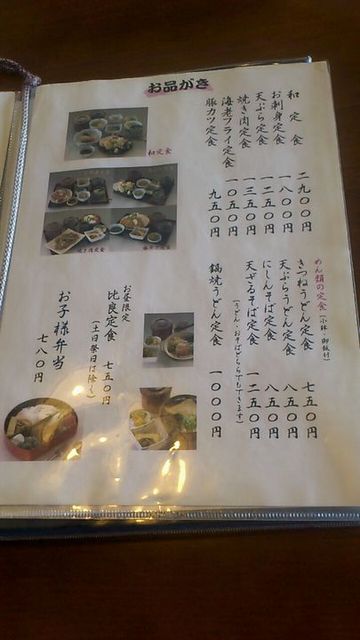 お品がき
和定食 二一九〇〇円
お刺身定食 一八〇〇円
天ぷら定食 一二五〇円
焼き肉定食 一三五〇円
海老フライ定食 一〇五〇円
豚カツ定食 九五〇円
和定食
めん類の定食(小鉢・御飯付)
きつねうどん定食 七五〇円
天ぷらうどん定食 八五〇円
にしんそば定食 八五〇円
天ざるそば定食 一二五〇円
(うどん・おそばどちらでもできます)
鍋焼うどん定食 一〇〇〇円
お昼限定
比良定食 七五〇円
(土日祭日は除く)
お子様弁当 七八〇円